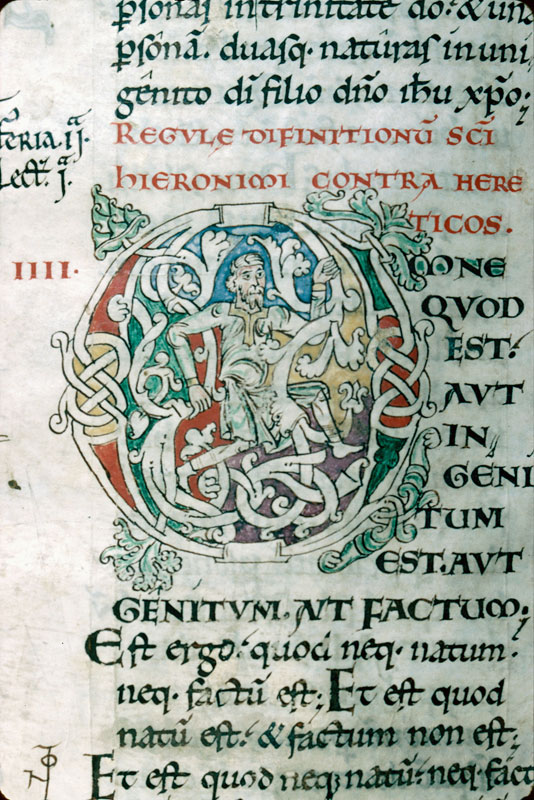 p̱sonaſ in trinitate do: & una
p̱sonā. duasq· naturaſ in uni
genito dī filio dño ihu xpo:
feria· ii· Regulę difinitionū scī
Lect̄· i· hieronimi contra here
ticos.
IIII· Omne
quod
est·
aut
in
geni
tum
est. aut
genitum. aut factum·
Est ergo· quod neq· natum·
neq· factū est; Et est quod
natū est· & factum non est;
Et est quod neq; natū· neq· fact